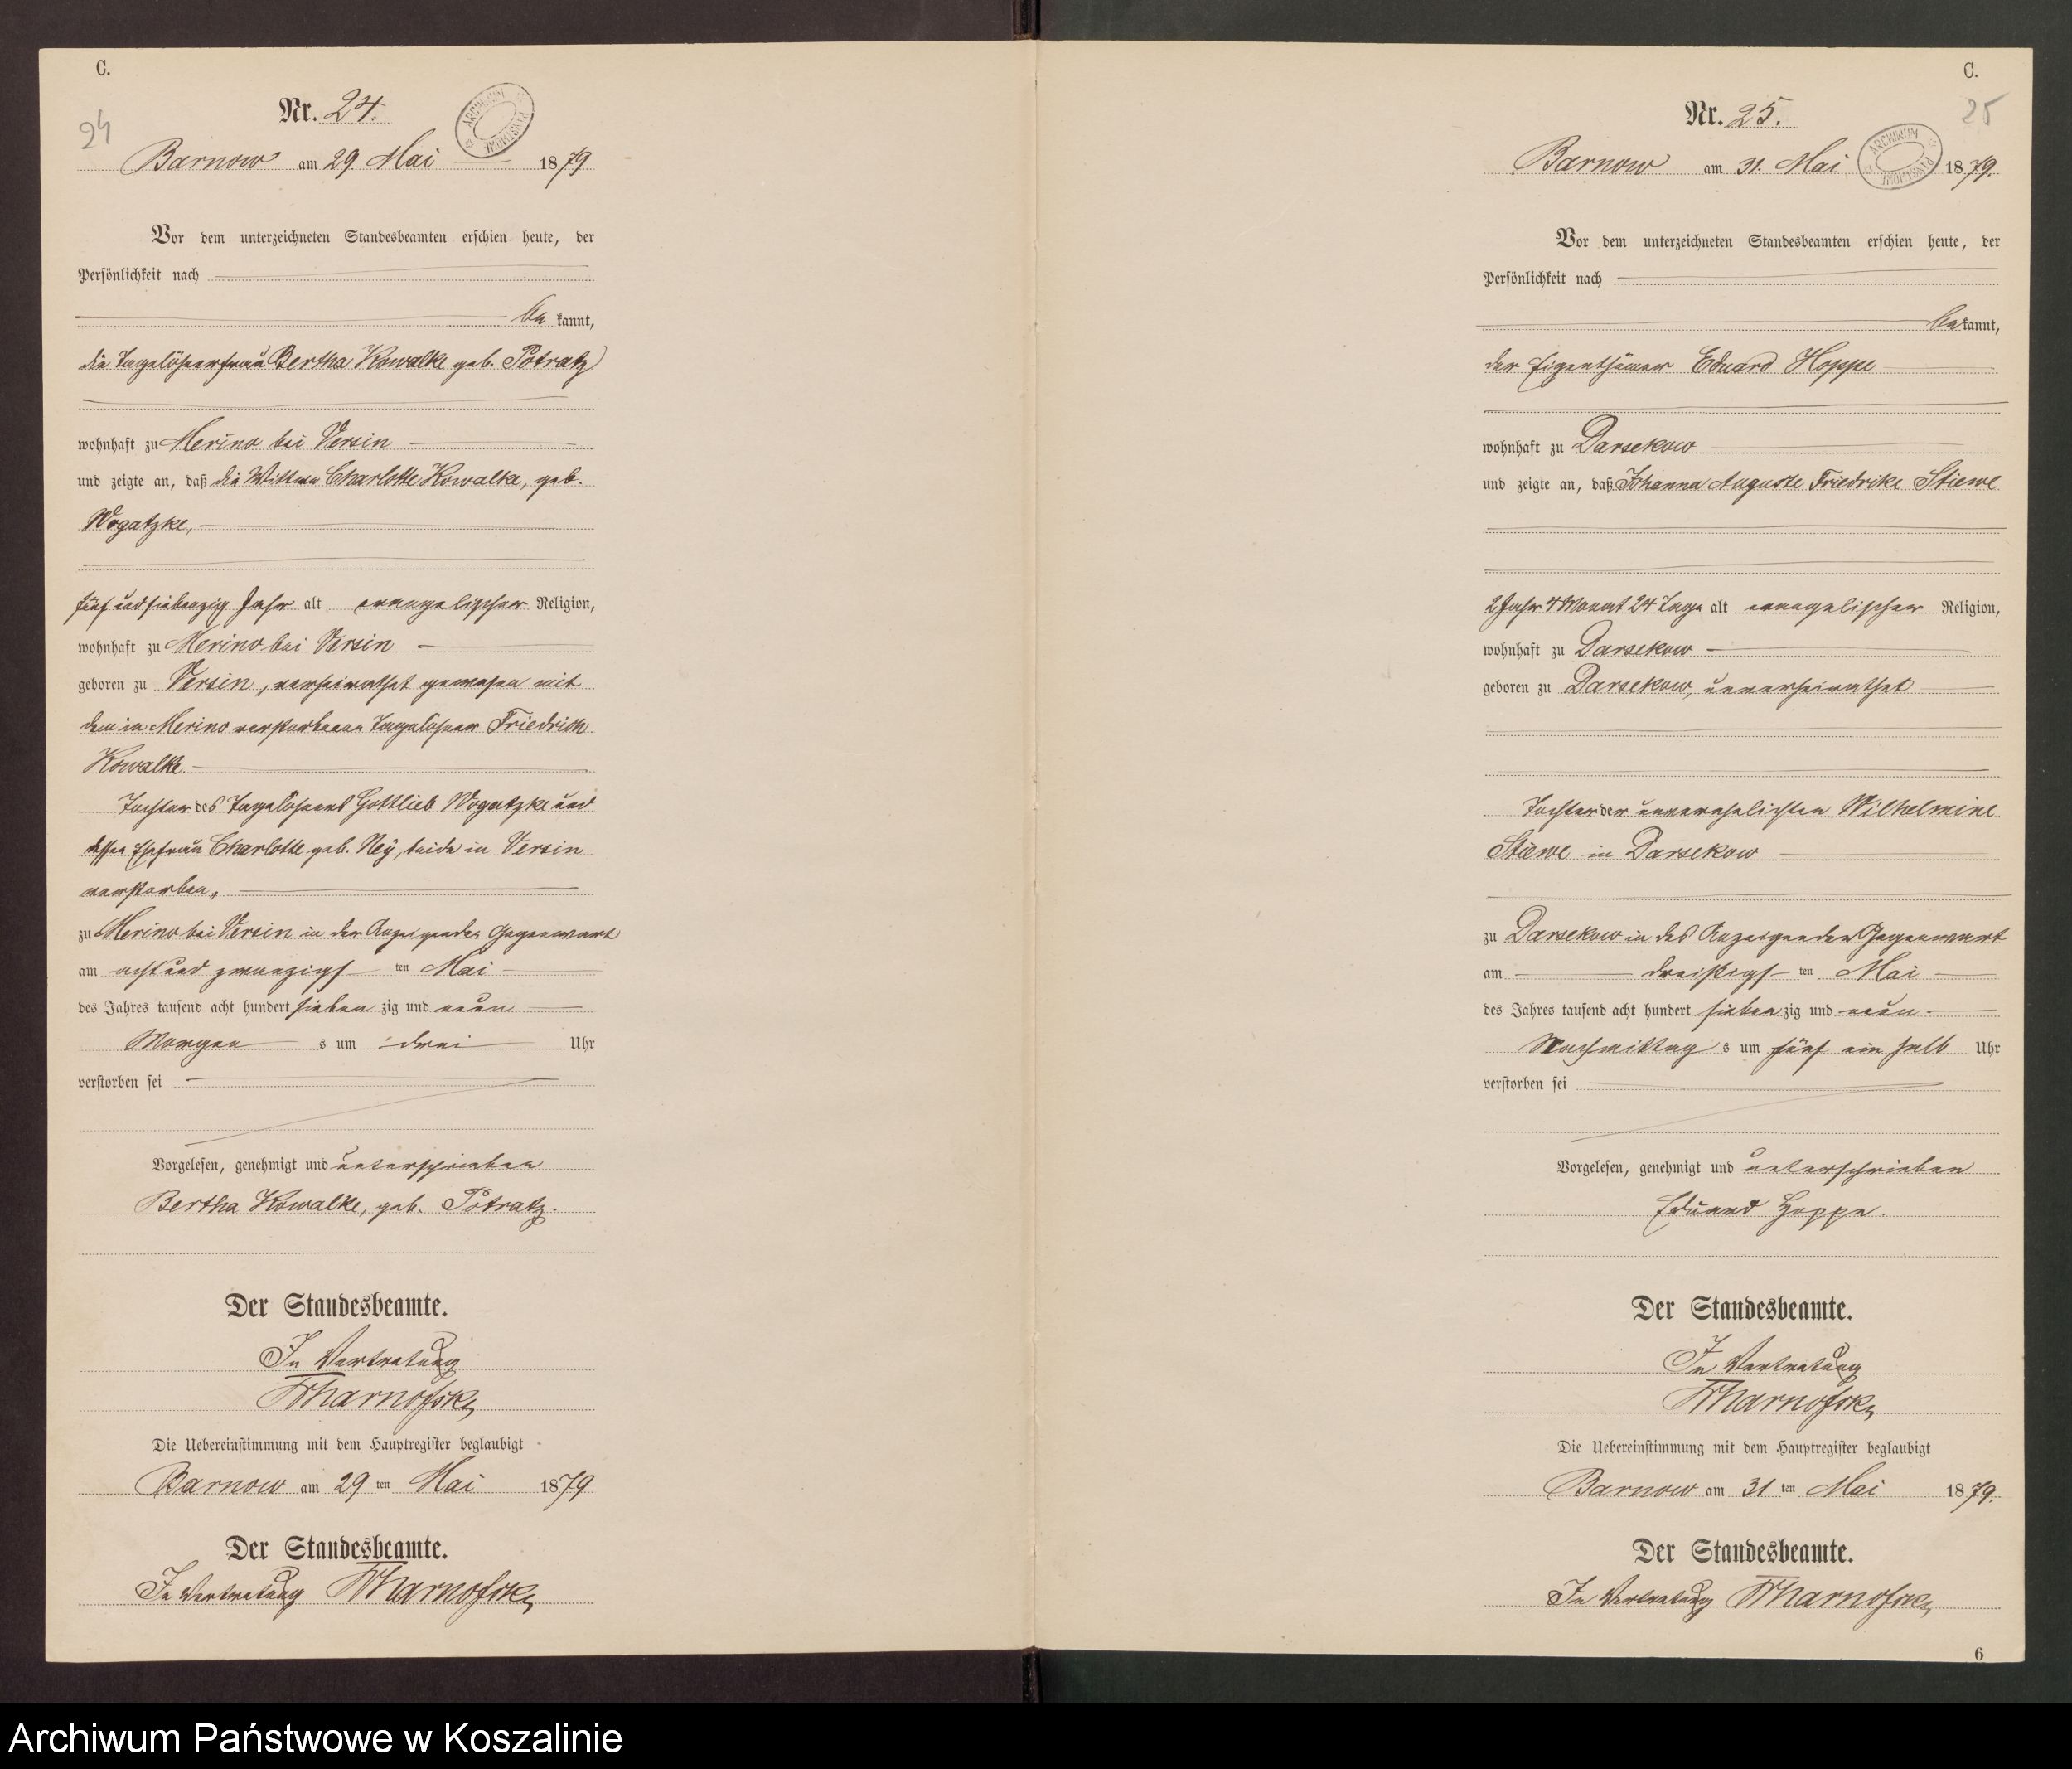 C.
24
Nr. 24.
ARCHIWUM PAŃSTWOWE
Barnow am 29 Mai 1879
Vor dem unterzeichneten Standesbeamten erschien heute, der
Persönlichkeit nach
be kannt,
die Tagelöhnerfrau Bertha Kowalke geb. Potratz
wohnhaft zu Merino bei Versin
und zeigte an, daß die Wittwe Charlotte Kowalke, geb.
Wogatzke,
fünf und siebenzig Jahr alt evangelischer Religion,
wohnhaft zu Merino bei Versin
geboren zu Versin, verheirathet gewesen mit
dem in Merino verstorbenen Tagelöhner Friedrich
Kowalke
Tochter des Tagelöhners Gottlieb Wogatzke und
dessen Ehefrau Charlotte geb. Ney, beide in Versin
verstorben,
zu Merino bei Versin in der Anzeigenden Gegenwart
am acht und zwanzigs ten Mai
des Jahres tausend acht hundert sieben zig und neun
Morgen s um drei Uhr
verstorben sei
Vorgelesen, genehmigt und unterschrieben
Bertha Kowalke, geb. Potratz.
Der Standesbeamte.
In Vertretung
Die Uebereinstimmung mit dem Hauptregister beglaubigt
Barnow am 29 ten Mai 1879
Der Standesbeamte.
In Vertretung
C.
25
Nr. 25.
ARCHIWUM PAŃSTWOWE
Barnow am 31. Mai 1879.
Vor dem unterzeichneten Standesbeamten erschien heute, der
Persönlichkeit nach
be kannt,
der Eigenthümer Eduard Hoppe
wohnhaft zu Darsekow
und zeigte an, daß Johanna Auguste Friedrike Stiewe
2 Jahr 4 Monat 24 Tage alt evangelischer Religion,
wohnhaft zu Darsekow
geboren zu Darsekow, unverheirathet
Tochter der unverehelichten Wilhelmine
Stiewe in Darsekow
zu Darsekow in des Anzeigenden Gegenwart
am dreißigs ten Mai
des Jahres tausend acht hundert sieben zig und neun
Nachmittag s um fünf ein halb Uhr
verstorben sei
Vorgelesen, genehmigt und unterschrieben
Eduard Hoppe.
Der Standesbeamte.
In Vertretung
Die Uebereinstimmung mit dem Hauptregister beglaubigt
Barnow am 31 ten Mai 1879.
Der Standesbeamte.
In Vertretung
6
Archiwum Państwowe w Koszalinie